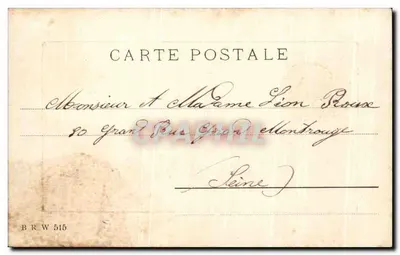 CARTE POSTALE
Monsieur et Madame Léon Roux
80 Grand Rue Grand Montrouge
(Seine)
B. R. W 515